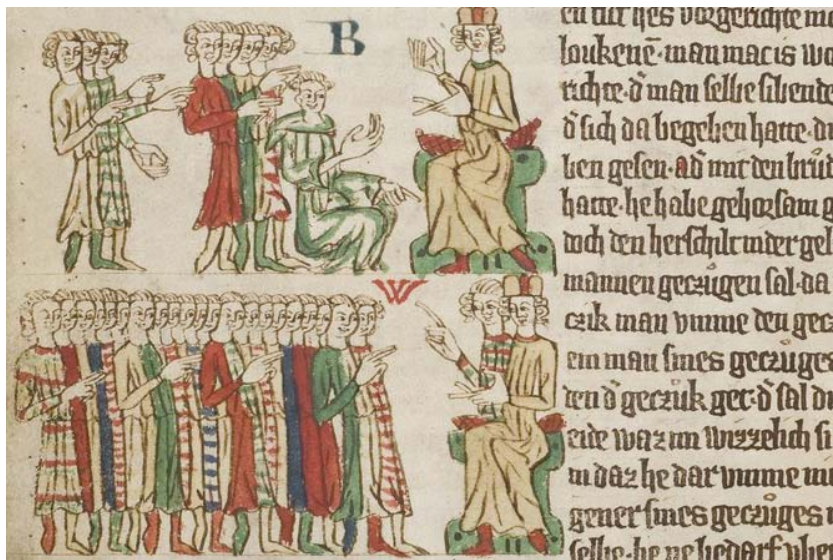 B
W
en tut ſies vorgerichte me
loukenē·man mac is wo
richte·d̄ man ſelbe ſibende
d̄ ſich da begeben hatte·de
ben geſen·ad̄ mit den brůd
hatte·he habe gehorſam g
doch den herſchilt nider gel
mannen geczůgen ſal·da
czik man vmme den gecz
ein man ſines geczůges
den d̄ gecziuk get·d̄ ſal da
eide waz im wizzelich ſi
in daz he dar vmme mi
gener ſines geczůges
ſelbe·he ne bedarf vber